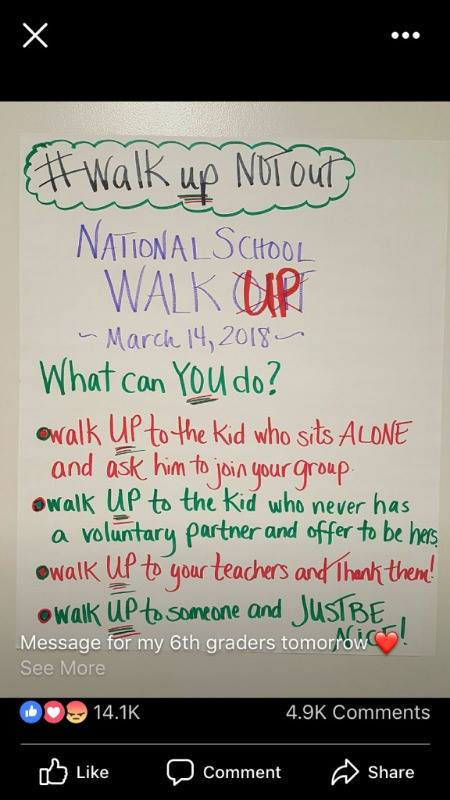 #Walk up NOT out
NATIONAL SCHOOL
WALK OUT UP
~ March 14, 2018 ~
What can YOU do?
walk UP to the kid who sits ALONE
and ask him to join your group.
walk UP to the kid who never has
a voluntary partner and offer to be hers.
walk UP to your teachers and Thank them!
walk UP to someone and JUST BE
NICE!
Message for my 6th graders tomorrow ❤️
See More
14.1K 4.9K Comments
Like Comment Share